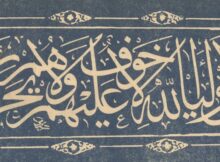 ولياء الله لا خوف عليهم ولا هم